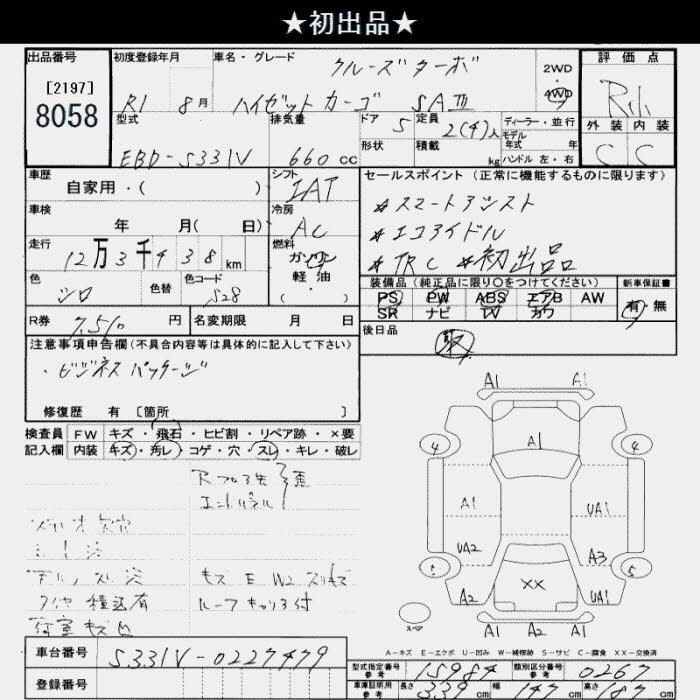 ★初出品★
出品番号 初度登録年月 車名・グレード 評価点
[2197]
8058
クルーズターボ
2WD
4WD
R1 8月 ハイゼットカーゴ SAⅢ
外装 内装
C C
型式 排気量 ドア 5 定員 2(4)人 ディーラー・並行
モデル年式 年
EBD-S331V 660cc 形状 積載 kg ハンドル 左・右
車歴 シフト セールスポイント(正常に機能するものに限ります)
自家用・( ) IAT
#スマートアシスト
車検 冷房
年 月( 日) AC
#エコアイドル
走行 燃料
12万3千438km ガソリン
#TRC #初出品
軽油
( )
色 色替 色コード
シロ S28
装備品(純正品に限り○をつけてください) 新車保証書
PS PW ABS エアB AW 有・無
SR ナビ TV カワ
R券 7,510円 名変期限 月 日
後日品
取
注意事項申告欄(不具合内容等は具体的に記入して下さい)
・ビジネスパッケージ
修復歴 有 [箇所 ]
検査員 FW キズ・飛石・ヒビ割・リペア跡・×要
記入欄 内装 キズ・汚レ・コゲ・穴・スレ・キレ・破レ
キズ E W2
タイヤ積込有 ルーフキャリア付
荷室キズ凹
A1 A1
4 A1 4
A1 UA1
UA2 A3
5
A2 XX UA1
スペア
A1 A2 A1
A-キズ E-エクボ U-凹み W-補修跡 S-サビ C-腐食 XX-交換済
車台番号 S331V-0227479
型式指定番号 参考 15984 類別区分番号 参考 0267
登録番号 車庫証明用 参考 長さ 339cm 幅 147cm 高さ 187cm